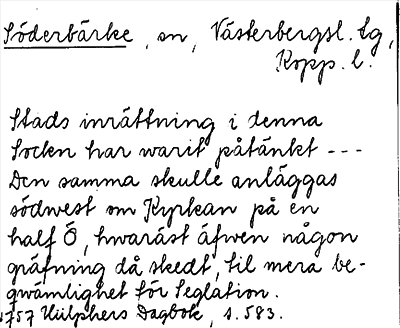 Söderbärke, sn, Västerbergsl. tg,
Kopp. l.
Stads inrättning i denna
Socken har warit påtänkt ---
Den samma skulle anläggas
södwest om Kyrkan på en
half Ö, hwaräst äfwen någon
gräfning då skedt, til mera be-
qwämlighet för Seglation.
1757 Hülphers Dagbok, s. 583.